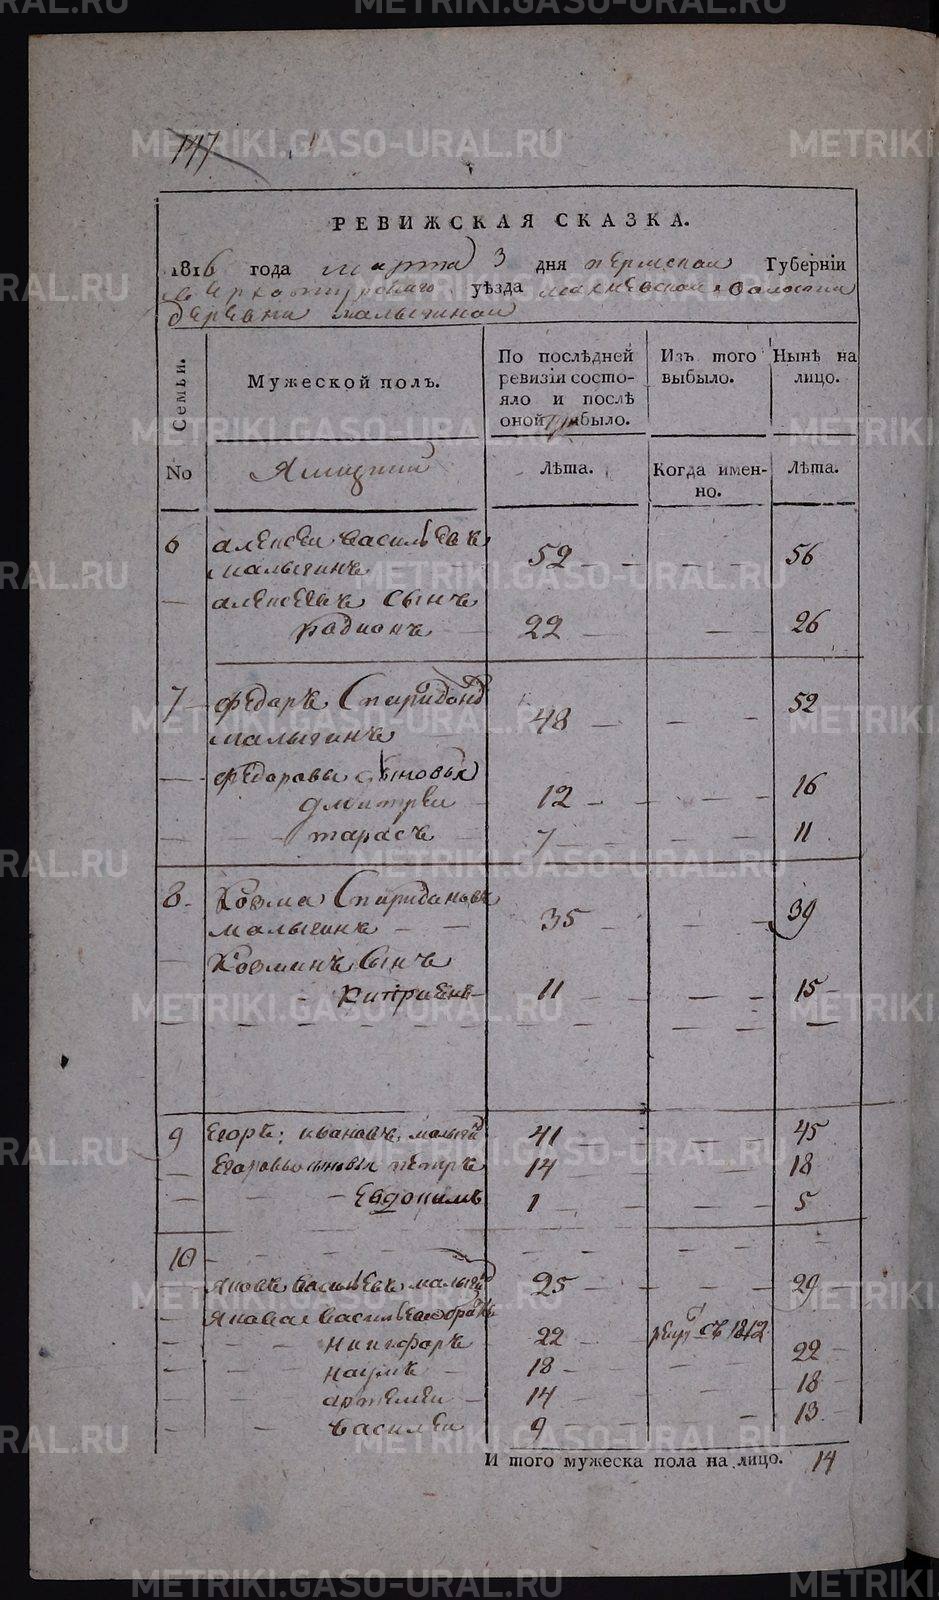 147
РЕВИЖСКАЯ СКАЗКА.
1816 года марта 3 дня пермской Губерніи
верхотурскаго уѣзда махневской волости
деревни малыгиной
Семьи.
Мужеской полъ.
По послѣдней ревизіи состояло и послѣ оной прибыло.
Изъ того выбыло.
Нынѣ на лицо.
No
Ямщики
Лѣта.
Когда именно.
Лѣта.
6 алексеи васильевъ
малыгинъ 52 — — 56
— алексеевъ сынъ
радионъ 22 — — 26
7 федаръ Спиридонов
малыгинъ 48 — — 52
— федаровы сыновья
дмитреи 12 — — 16
тарасъ 7 — — 11
8 Козма Спиридановъ
малыгинъ 35 — — 39
— Козминъ сынъ
11 — — 15
9 Егоръ ивановъ малыги 41 45
Егоравы сыновья петръ 14 — — 18
Евдокимъ 1 — — 5
10
яковъ васильевъ малыги 25 — — 29
якова васильева братья
никифоръ 22 — рекру съ 1812 22
наумъ 18 — — 18
артемеи 14 — — 13
василеи 9 — —
И того мужеска пола на лицо. 14
METRIKI.GASO-URAL.RU